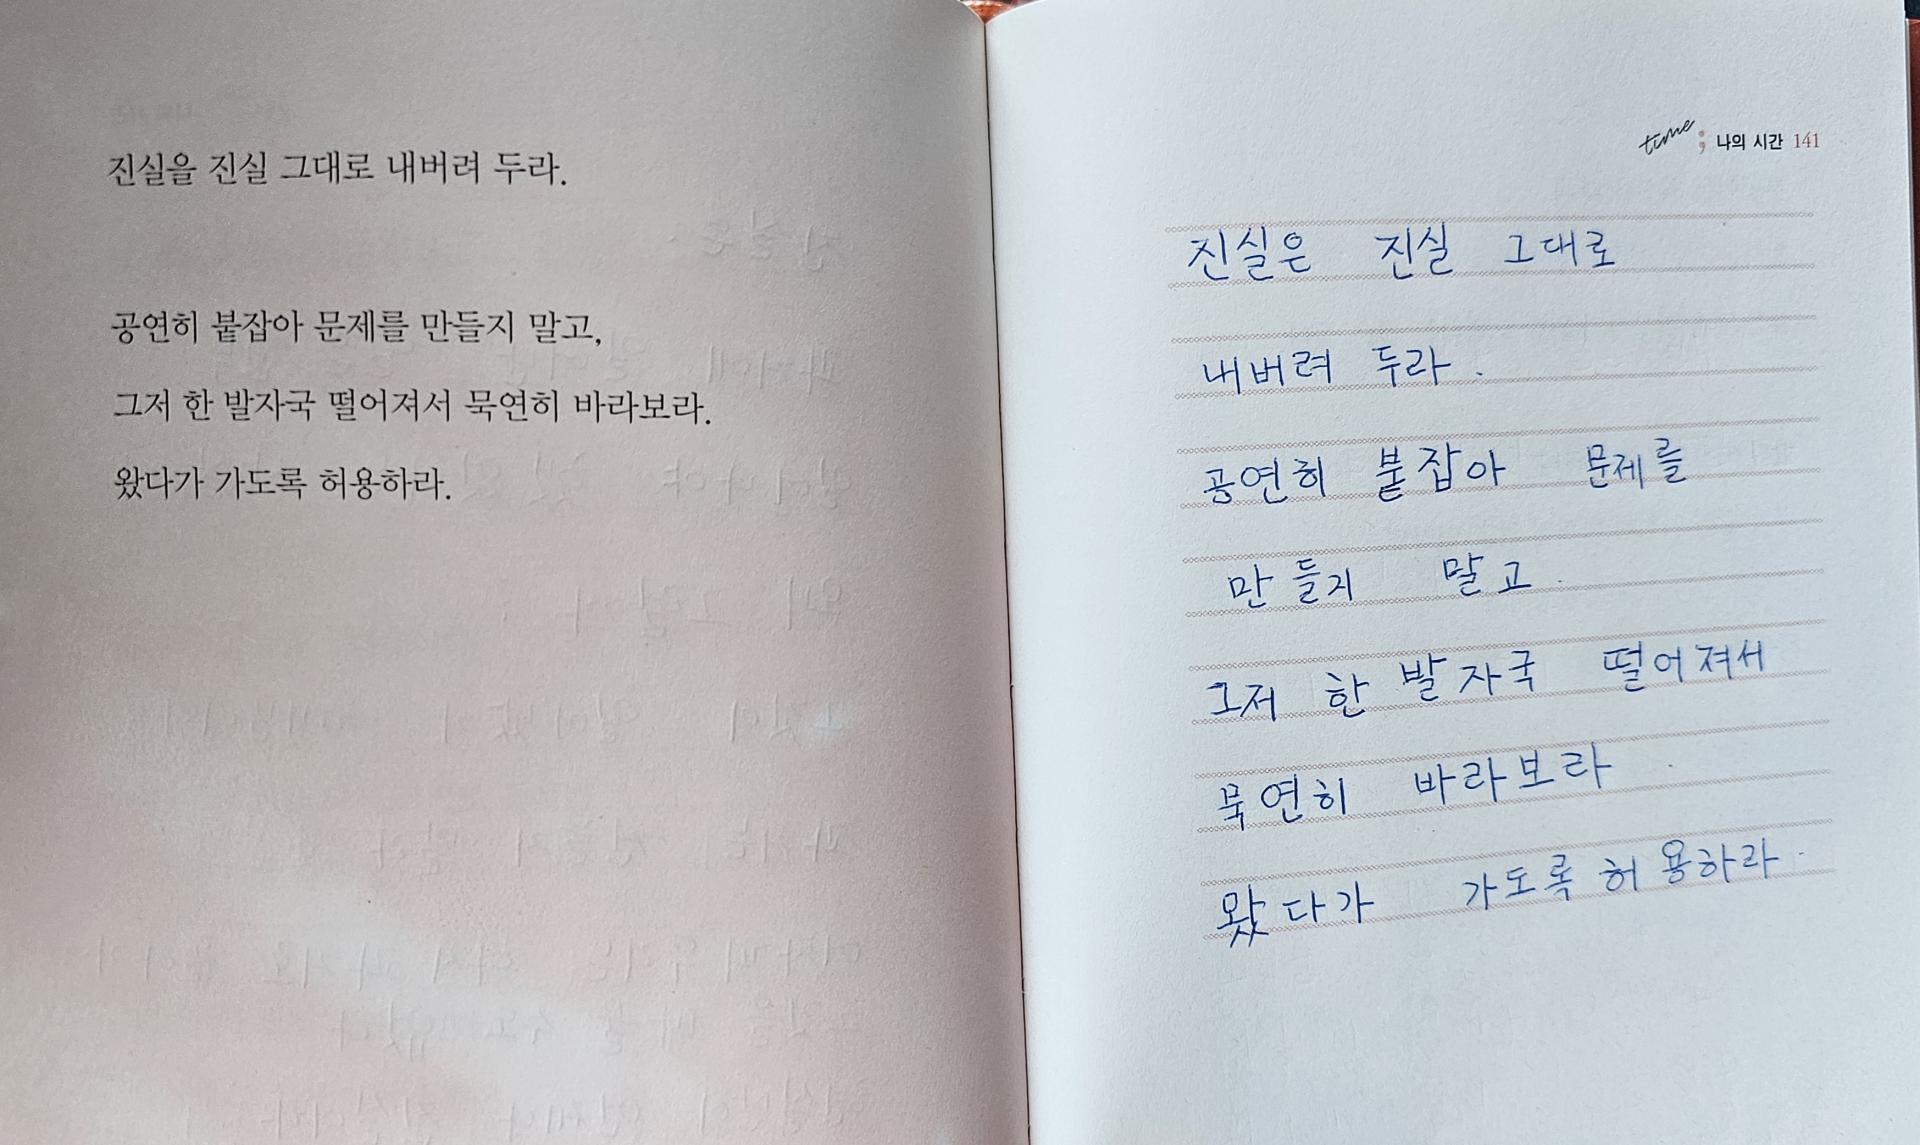 진실을 진실 그대로 내버려 두라.
공연히 붙잡아 문제를 만들지 말고,
그저 한 발자국 떨어져서 묵연히 바라보라.
왔다가 가도록 허용하라.
time; 나의 시간 141
진실은 진실 그대로
내버려 두라.
공연히 붙잡아 문제를
만들지 말고.
그저 한 발자국 떨어져서
묵연히 바라보라.
왔다가 가도록 허용하라.